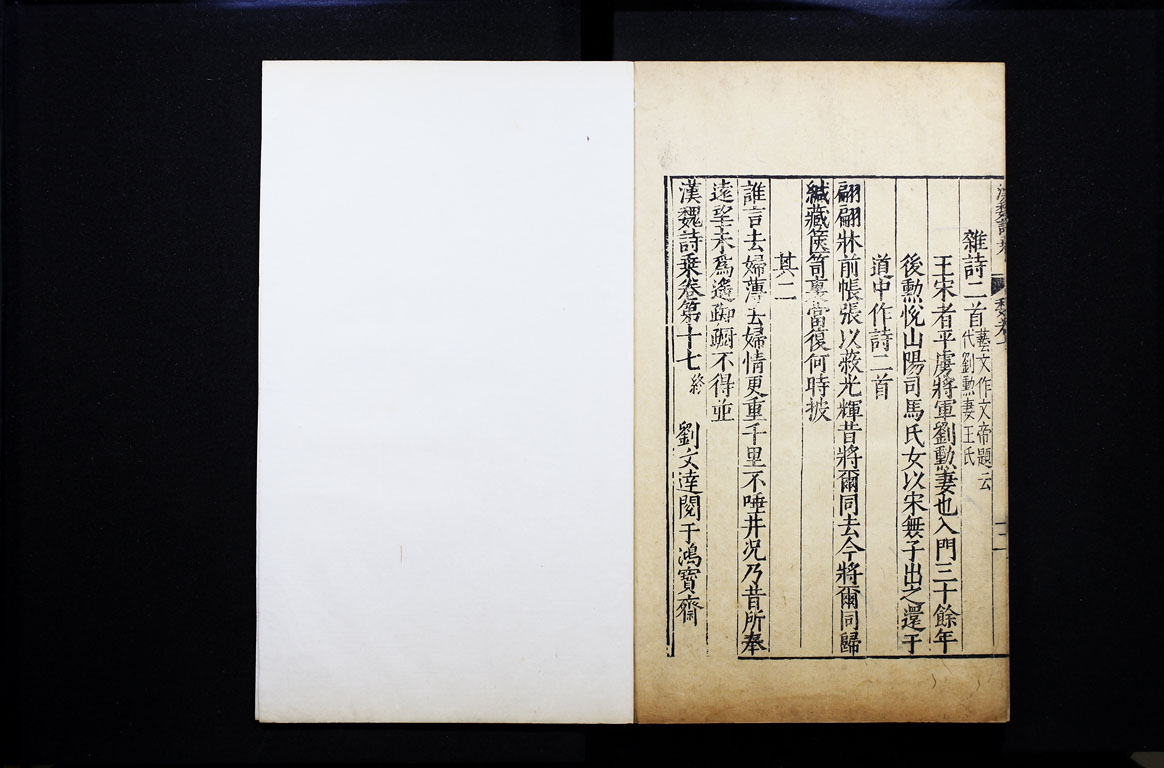 雜詩二首藝文作文帝題云代劉勲妻王氏
王宋者平虜將軍劉勲妻也入門三十餘年
後勲悅山陽司馬氏女以宋無子出之還于
道中作詩二首
翩翩牀前帳張以蔽光輝昔將爾同去今將爾同歸
緘藏篋笥裏當復何時披
其二
誰言去婦薄去婦情更重千里不唾井况乃昔所奉
遠望未爲遙踟躕不得並
漢魏詩乗卷第十七終 劉文達閱于鴻寶齋